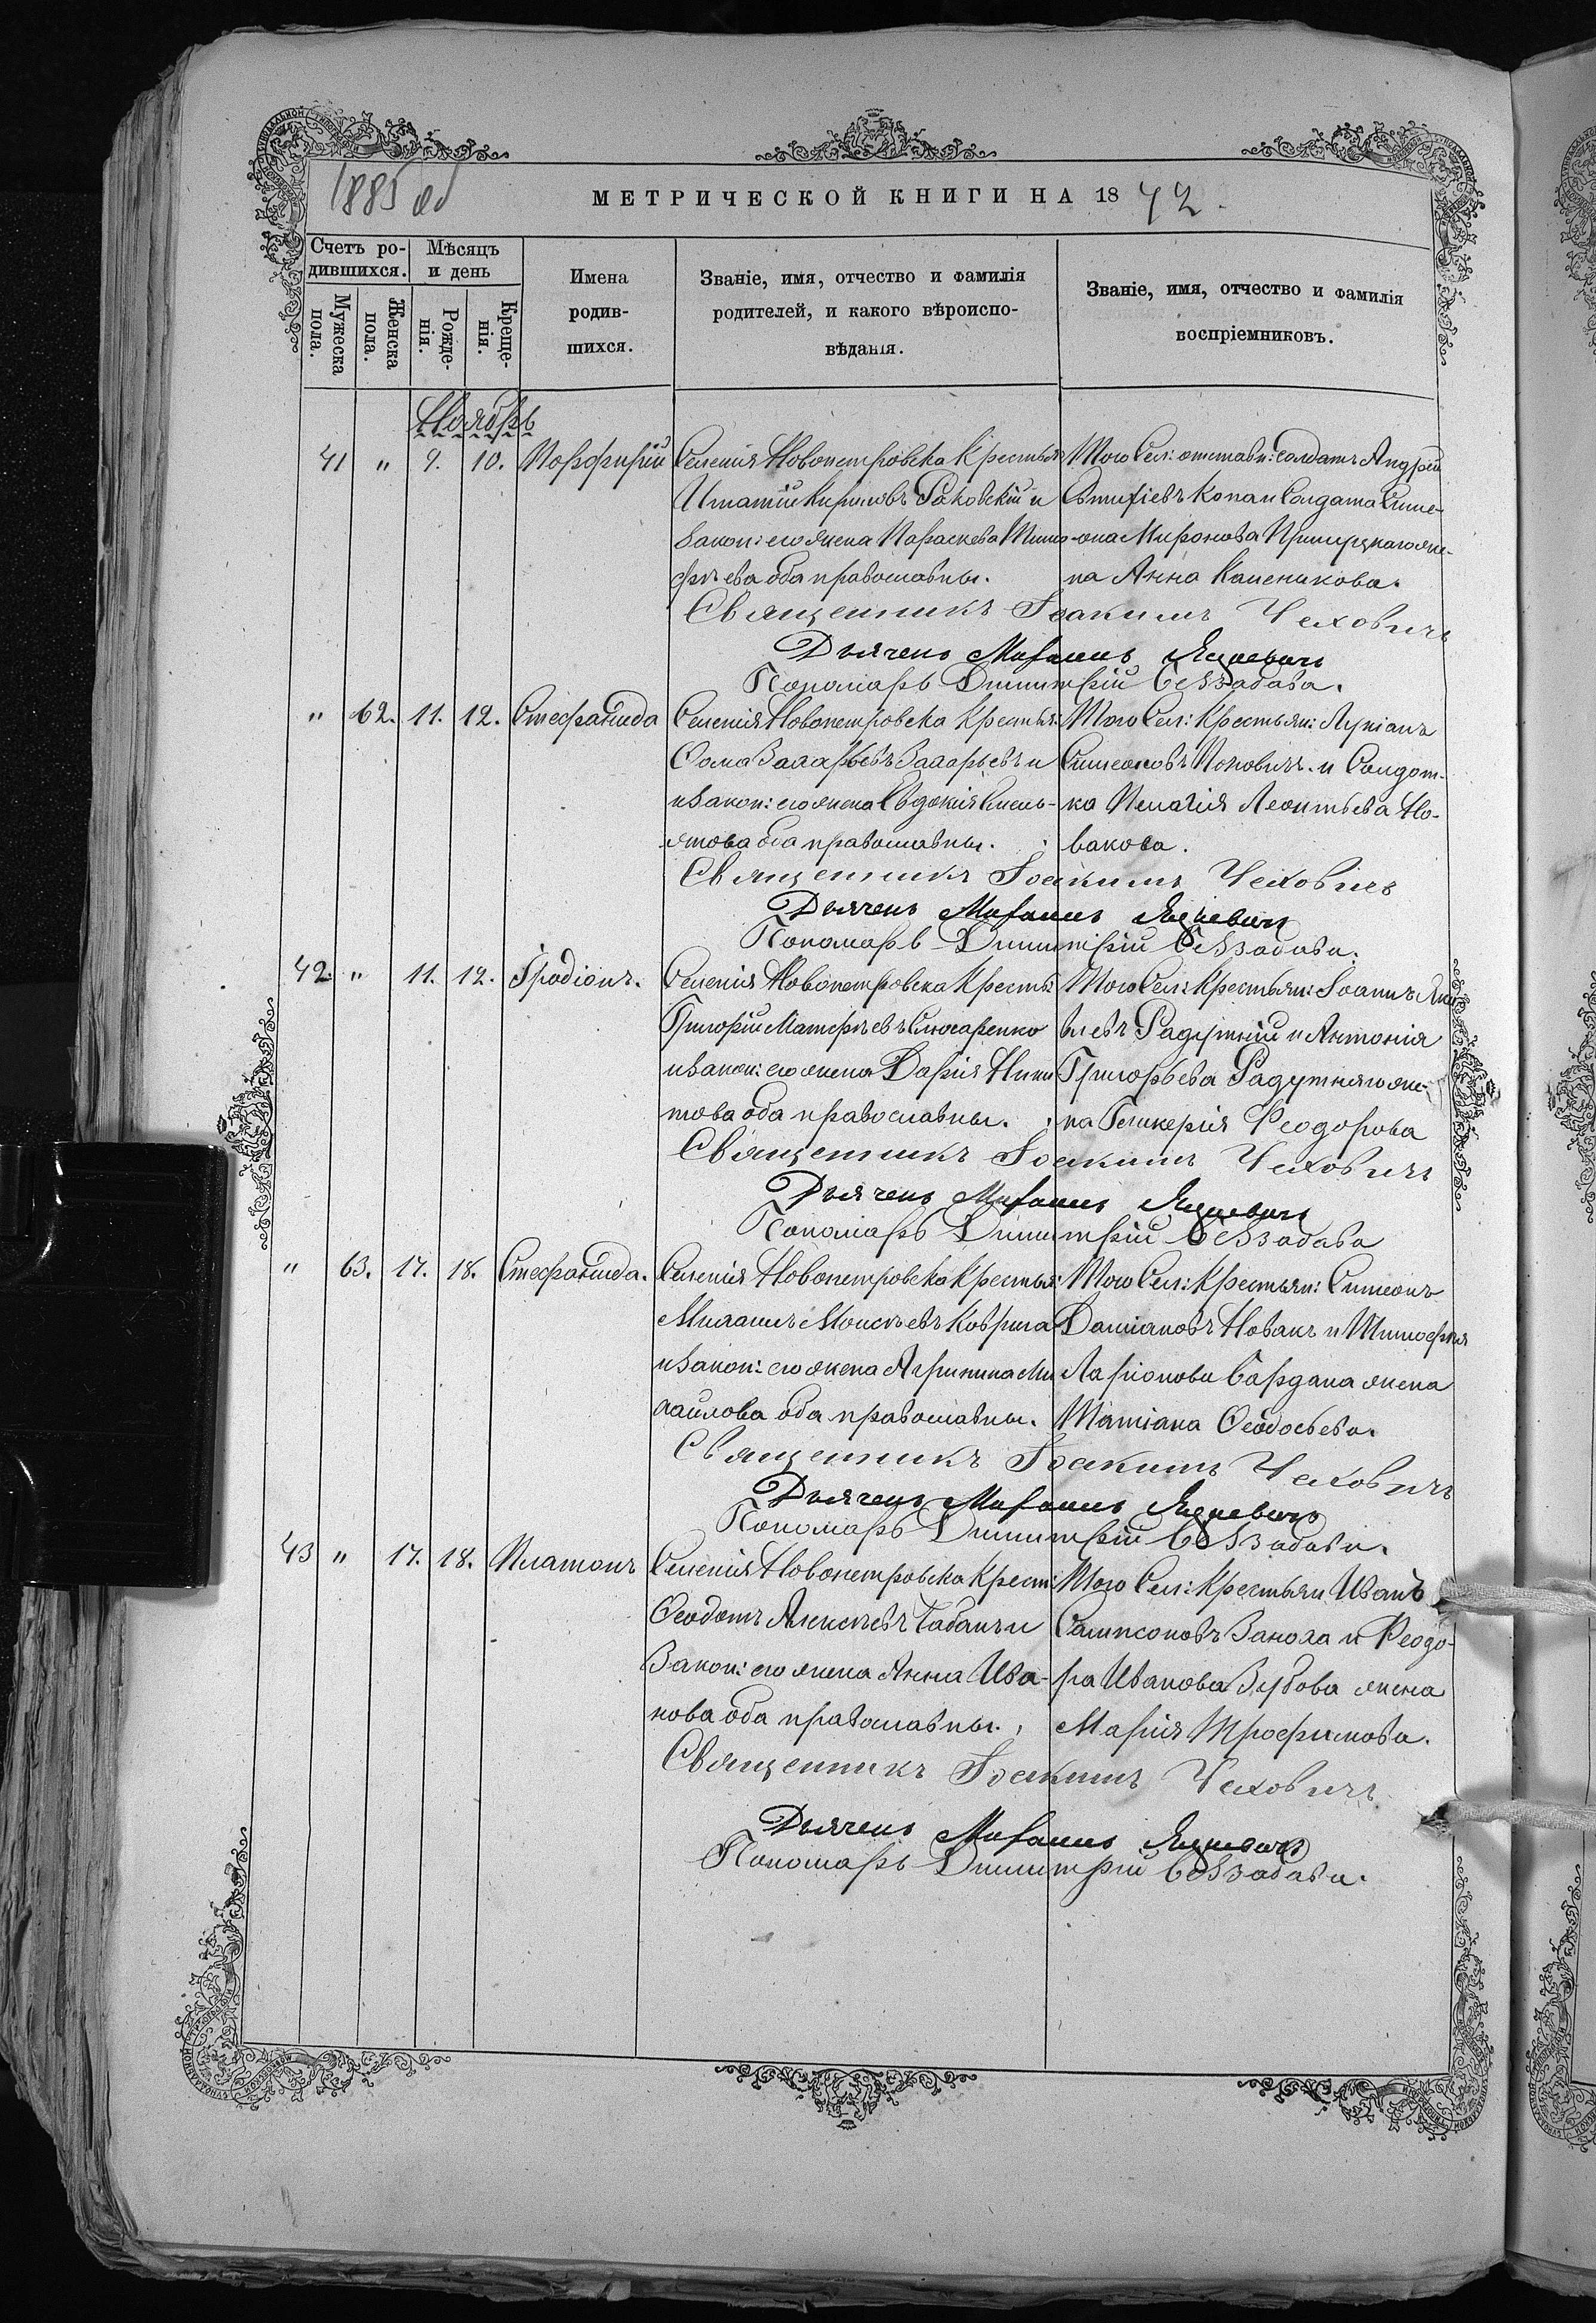 1885 об
МЕТРИЧЕСКОЙ КНИГИ НА 18 72.
Счетъ ро-
дившихся.
Мѣсяцъ
и день
Мужеска
пола.
Женска
пола.
Рожде-
нія.
Креще-
нія.
Имена
родив-
шихся.
Званіе, имя, отчество и фамилія
родителей, и какого вѣроиспо-
вѣданія.
Званіе, имя, отчество и фамилія
воспріемниковъ.
Ноябрь
41 " 9. 10. Порфирій
Селенія Новопетровска Крестья
Игнатій Кириловъ Раковскій и
Закон: его жена Параскева Тимо
фѣева оба православны.
Того Сел: отставн: солдатъ Андрей
Евтихіевъ Копап Солдата Симе-
она Миронова жe-
на Анна Каленикова.
Священникъ Іоакимъ Чеховичъ
Дьячекъ Михаилъ Яцкевичъ
Пономарь Димитрій Беззабава.
" 62. 11. 12. Стефанида
Селенія Новопетровска Крестья:
Ѳома Захарьевъ Захарьевъ и
и Закон: его жена Евдокія Емель-
янова оба православны.
Того Сел: Крестьян: Лукіанъ
Симеоновъ Поповичъ. и Солдат-
ка Пелагія Леонтьева Но-
вакова.
Священникъ Іоакимъ Чеховичъ
Дьячекъ Михаилъ Яцкевичъ
Пономарь Димитрій Беззабава.
42. " 11. 12. Іродіонъ.
Селенія Новопетровска Кресть:
Григорій Матфѣевъ Слюсаренко
и Закон: его жена Дарія Ники
това оба православны.
Того Сел: Крестьян: Іоаннъ Яко
влевъ Радутній и Антонія
Григорьева Радутняго же-
на Гликерія Феодорова
Священникъ Іоакимъ Чеховичъ
Дьячекъ Михаилъ Яцкевичъ
Пономарь Димитрій Беззабава
" 63. 17. 18. Стефанида.
Селенія Новопетровска Крестья:
Михаилъ Моисѣевъ Коврига
и Закон: его жена Агрипина Ми
хаилова оба православны.
Того Сел: Крестьян: Симеонъ
Даміановъ Новакъ и Тимофея
Ларіонова Бардана жена
Татіана Ѳеодосьева.
Священникъ Іоакимъ Чеховичъ
Дьячекъ Михаилъ Яцкевичъ
Пономарь Димитрій Беззабава.
43 " 17. 18. Платонъ
Селенія Новопетровска Крест:
Ѳеодотъ Алексѣевъ Чабанъ и
Закон: его жена Анна Ива-
нова оба православны.
Того Сел: Крестьян Иванъ
Сампсоновъ Заноха и Феодо-
ра Иванова Зубова жена
Марія Трофимова.
Священникъ Іоакимъ Чеховичъ
Дьячекъ Михаилъ Яцкевичъ
Пономарь Димитрій Беззабава.